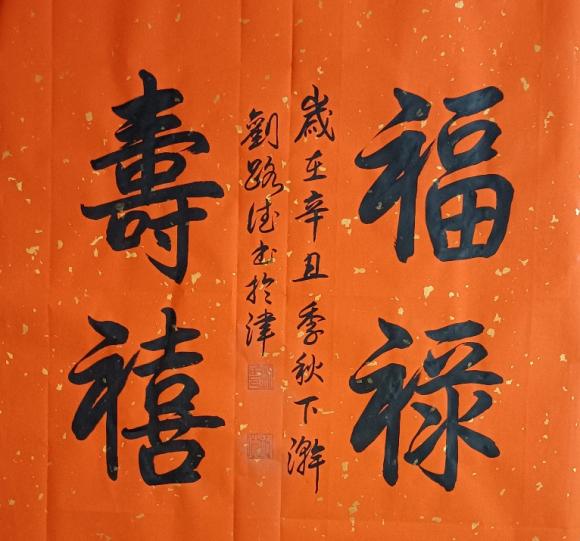 福禄
壽禧
歲在辛丑季秋下澣
劉路法书於津